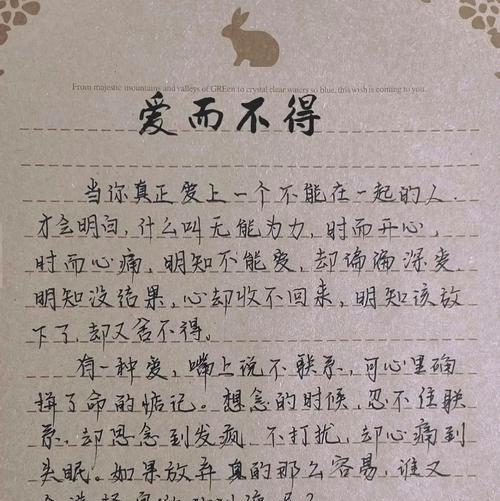 From majestic mountains and valleys of GREen to crystal clear waters so blue, this wish is coming to you.
爱而不得
当你真正爱上一个不能在一起的人.
才会明白,什么叫无能为力,时而开心,
时而心痛,明知不能爱,却偏偏深爱,
明知没结果,心却收不回来,明知该放
下了,却又舍不得。
有一种爱,嘴上说不联系,可心里确
拼了命的惦记。想念的时候,忍不住联
系,却思念到发疯,不打扰,却心痛到
失眠。如果放弃真的那么容易,谁又